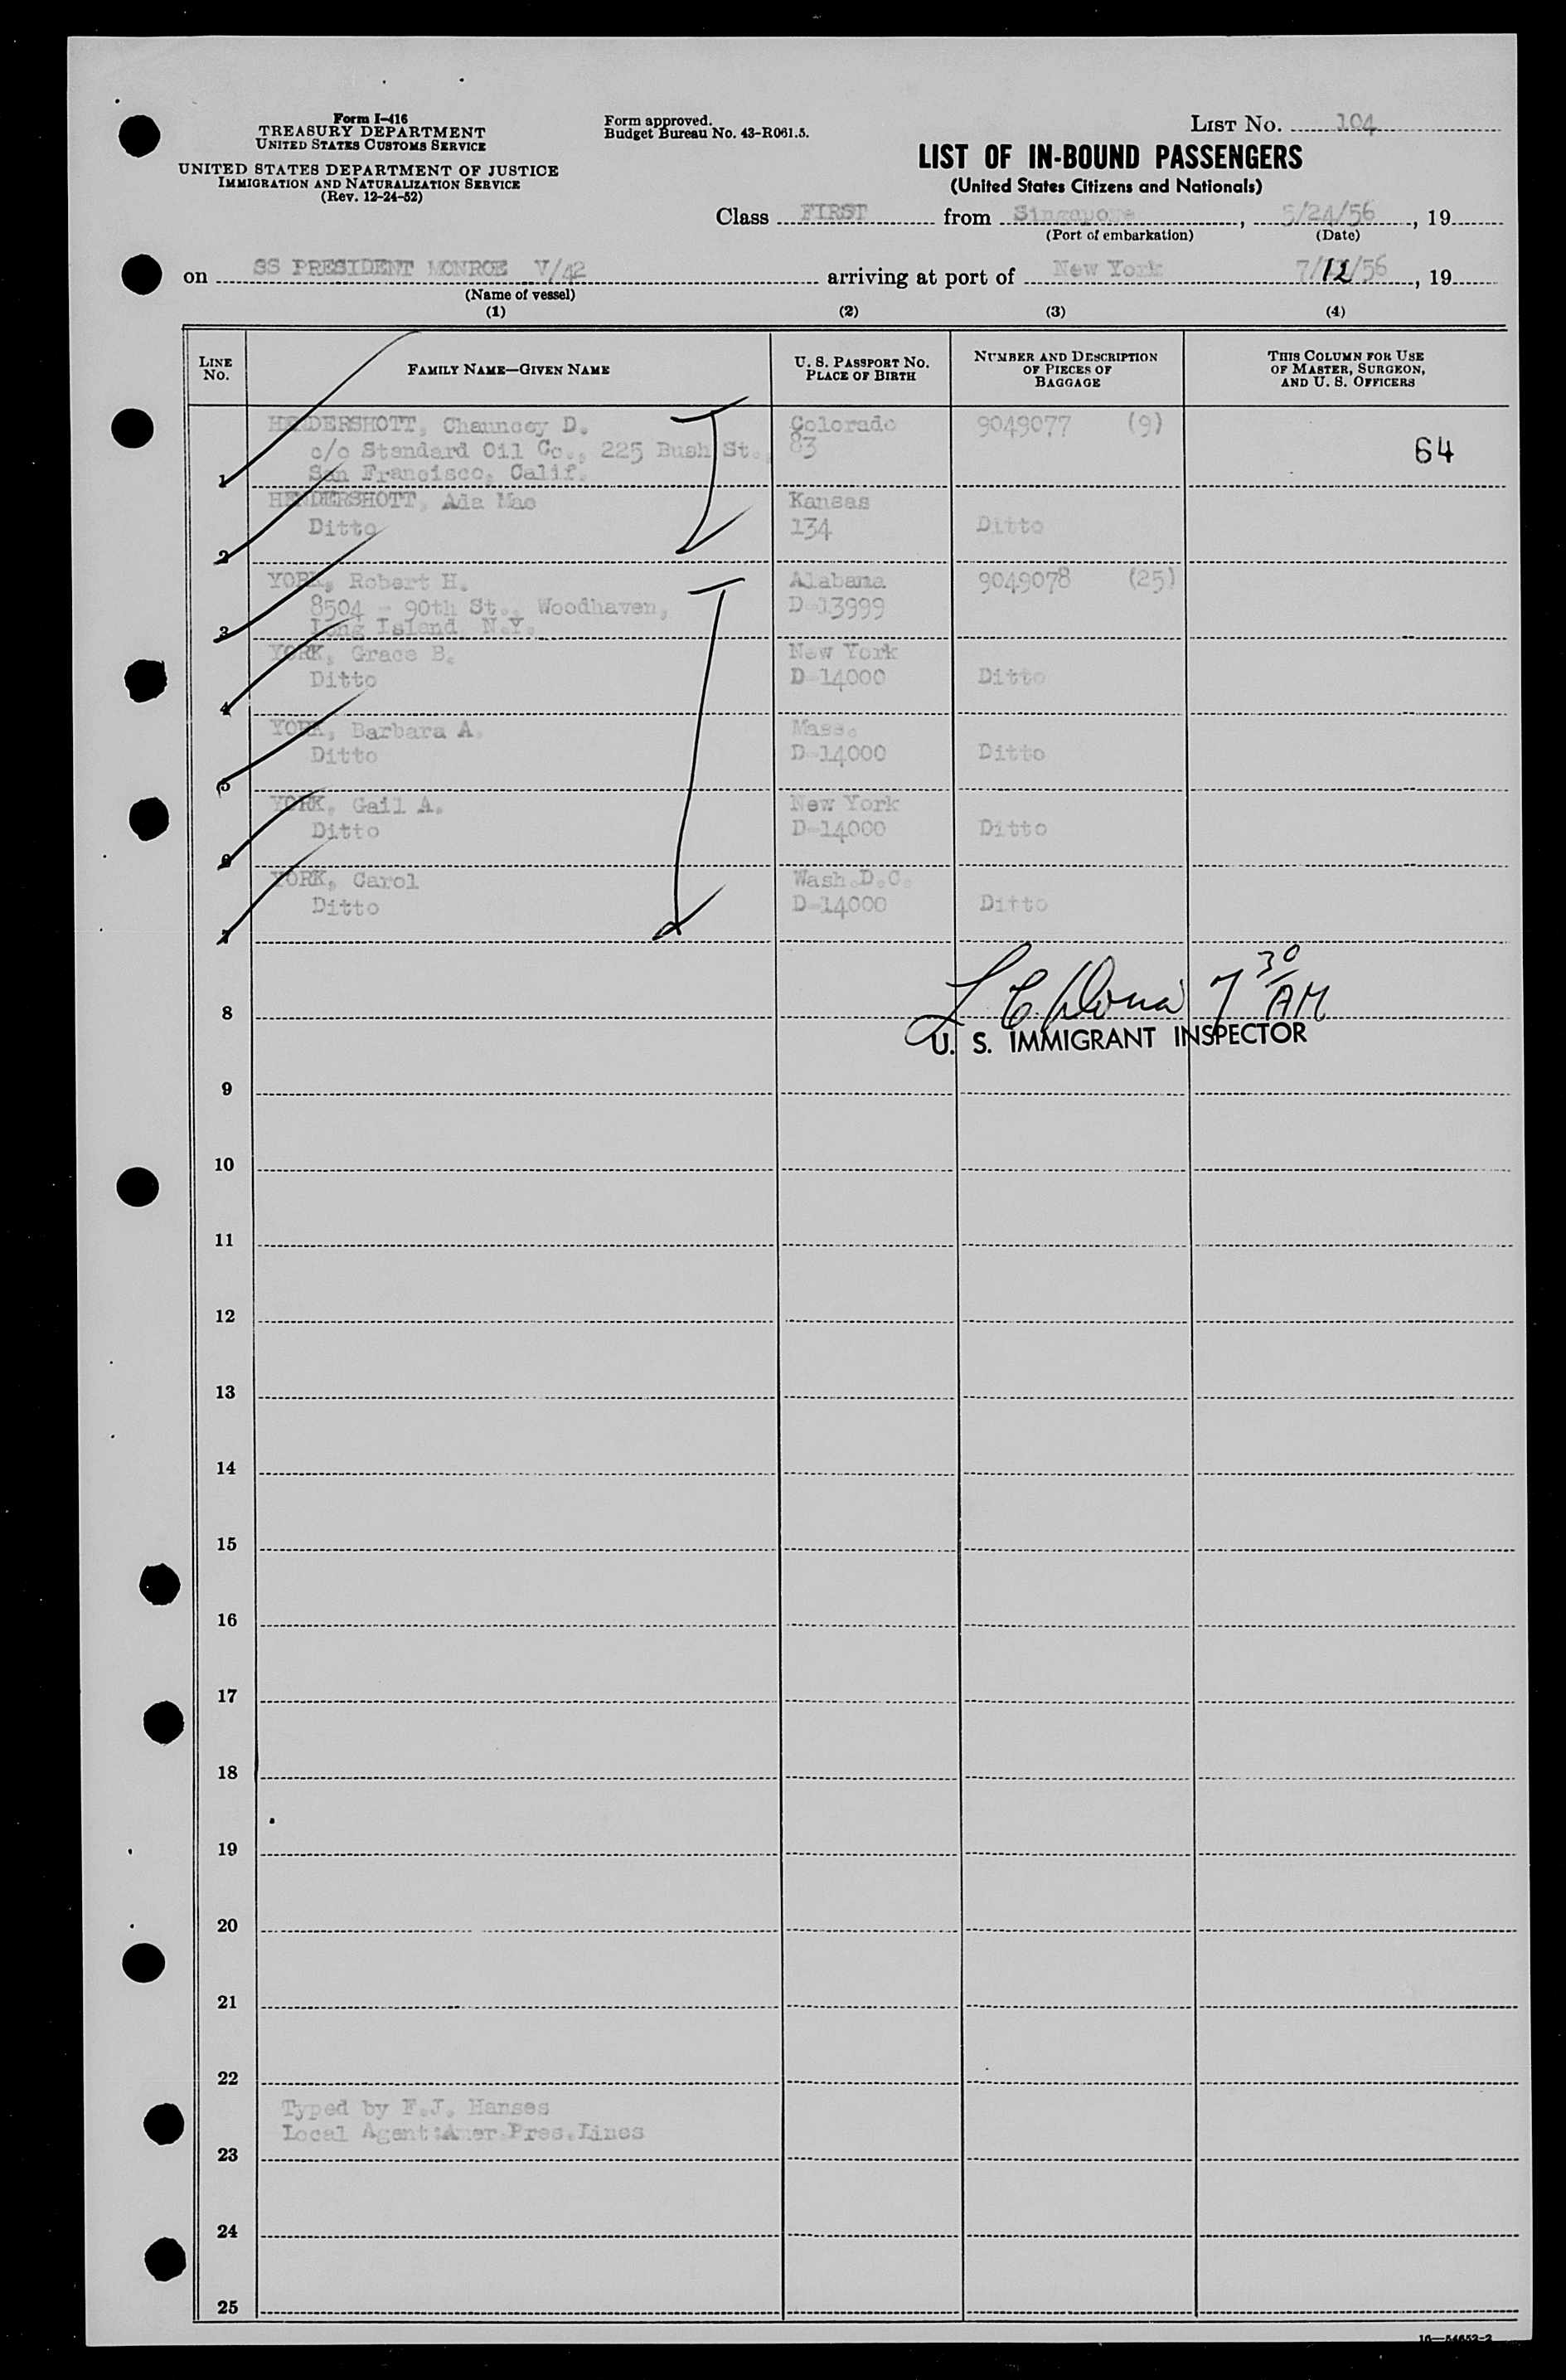 Form I-416
TREASURY DEPARTMENT
UNITED STATES CUSTOMS SERVICE
UNITED STATES DEPARTMENT OF JUSTICE
IMMIGRATION AND NATURALIZATION SERVICE
(Rev. 12-24-52)
Form approved.
Budget Bureau No. 43-R061.5.
LIST No. 104
LIST OF IN-BOUND PASSENGERS
(United States Citizens and Nationals)
Class FIRST from Singapore, 5/24/56, 19
(Port of embarkation) (Date)
on SS PRESIDENT MONROE V/42 arriving at port of New York 7/12/56, 19
(Name of vessel)
(1) (2) (3) (4)
LINE No. FAMILY NAME—GIVEN NAME U. S. PASSPORT NO. PLACE OF BIRTH NUMBER AND DESCRIPTION OF PIECES OF BAGGAGE THIS COLUMN FOR USE OF MASTER, SURGEON, AND U. S. OFFICERS
HENDERSHOTT, Chauncey D. Colorado 9049077 (9)
c/o Standard Oil Co., 225 Bush St., 83 64
1 San Francisco, Calif.
HENDERSHOTT, Ada Mae Kansas
Ditto 134 Ditto
2
YORK, Robert H. Alabama 9049078 (25)
8504 - 90th St., Woodhaven, D-13999
3 Long Island, N.Y.
YORK, Grace B. New York
Ditto D-14000 Ditto
4
YORK, Barbara A. Mass.
Ditto D-14000 Ditto
5
YORK, Gail A. New York
Ditto D-14000 Ditto
6
YORK, Carol Wash.D.C.
Ditto D-14000 Ditto
7
7 30 AM
8
U. S. IMMIGRANT INSPECTOR
9
10
11
12
13
14
15
16
17
18
19
20
21
22
Typed by F.J. Hanses
Local Agent:Amer.Pres.Lines
23
24
25
16—54652-2